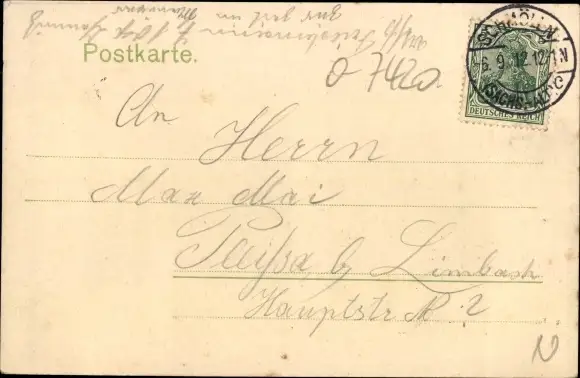 Postkarte.
O 7420
SCHMÖLLN
6.9.12.12-1N
(SACHS.-A.)
DEUTSCHES REICH
An
Herrn
Max Mai
Pleißa b/ Limbach
Hauptstr № 2
N